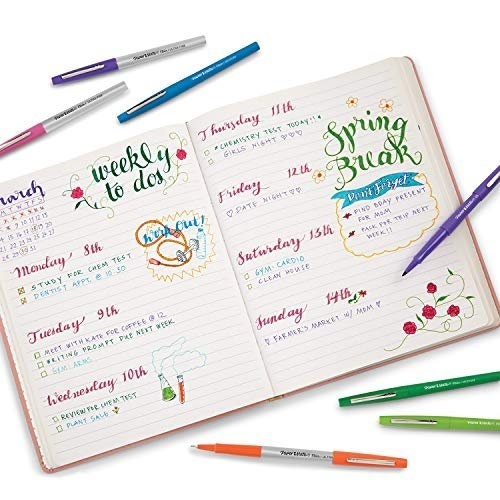 Paper Mate
Paper Mate
Paper Mate
march
weekly
to dos
Monday 8th
STUDY FOR CHEM TEST
DENTIST APPT. @ 10:30
work out!
Tuesday 9th
MEET WITH KATE FOR COFFEE @ 12
WRITING PROMPT DUE NEXT WEEK
GYM: ARMS
Wednesday 10th
REVIEW FOR CHEM TEST
PLANT SALE
Thursday 11th
*CHEMISTRY TEST TODAY!!*
GIRLS NIGHT
Friday 12th
DATE NIGHT
Saturday 13th
GYM-CARDIO
CLEAN HOUSE
Sunday 14th
FARMER'S MARKET W/ MOM
Spring
Break
Don't Forget
FIND BDAY PRESENT
FOR MOM
PACK FOR TRIP NEXT
WEEK!!
Paper Mate
Paper Mate
Paper Mate